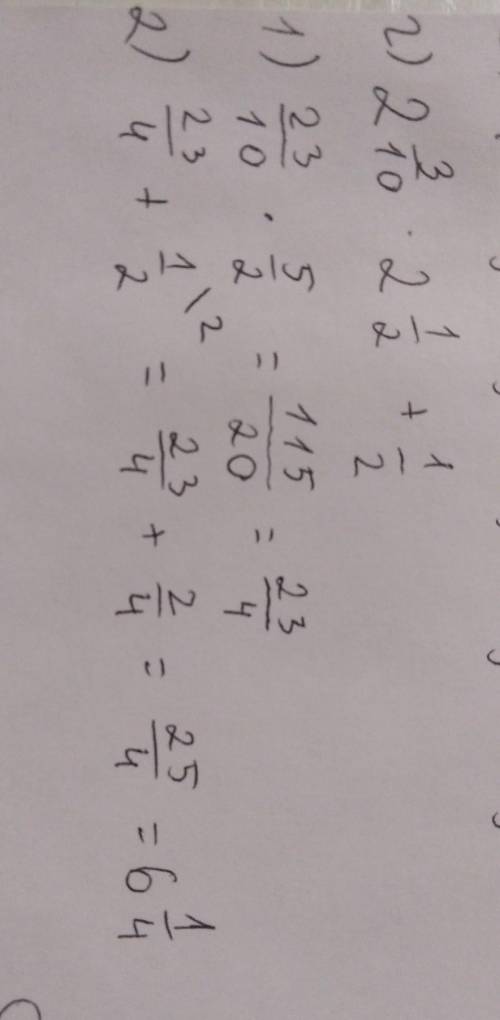 г) 2 3/10 · 2 1/2 + 1/2
1) 23/10 · 5/2 = 115/20 = 23/4
2) 23/4 + 1/2 \2 = 23/4 + 2/4 = 25/4 = 6 1/4